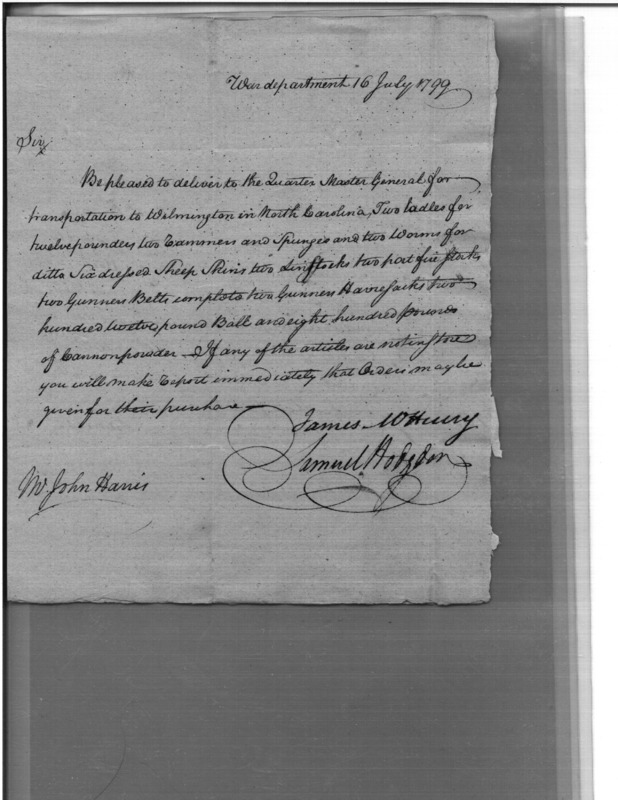 War department 16 July 1799
Sir
Be pleased to deliver to the Quarter Master General for
transportation to Wilmington in North Carolina, Two Ladles for
twelve pounders two Rammers and Spunges and two Worms for
ditto Six dressed Sheep Skins two Linstocks two port fire Stocks
two Gunners Belts complete two Gunners Haversacks two
hundred twelve pound Ball and eight hundred pounds
of Cannon powder - If any of the articles are not in store
you will make report immediately that Orders may be
given for their purchase
James McHenry
Samuel Hodgdon
Mr. John Harris